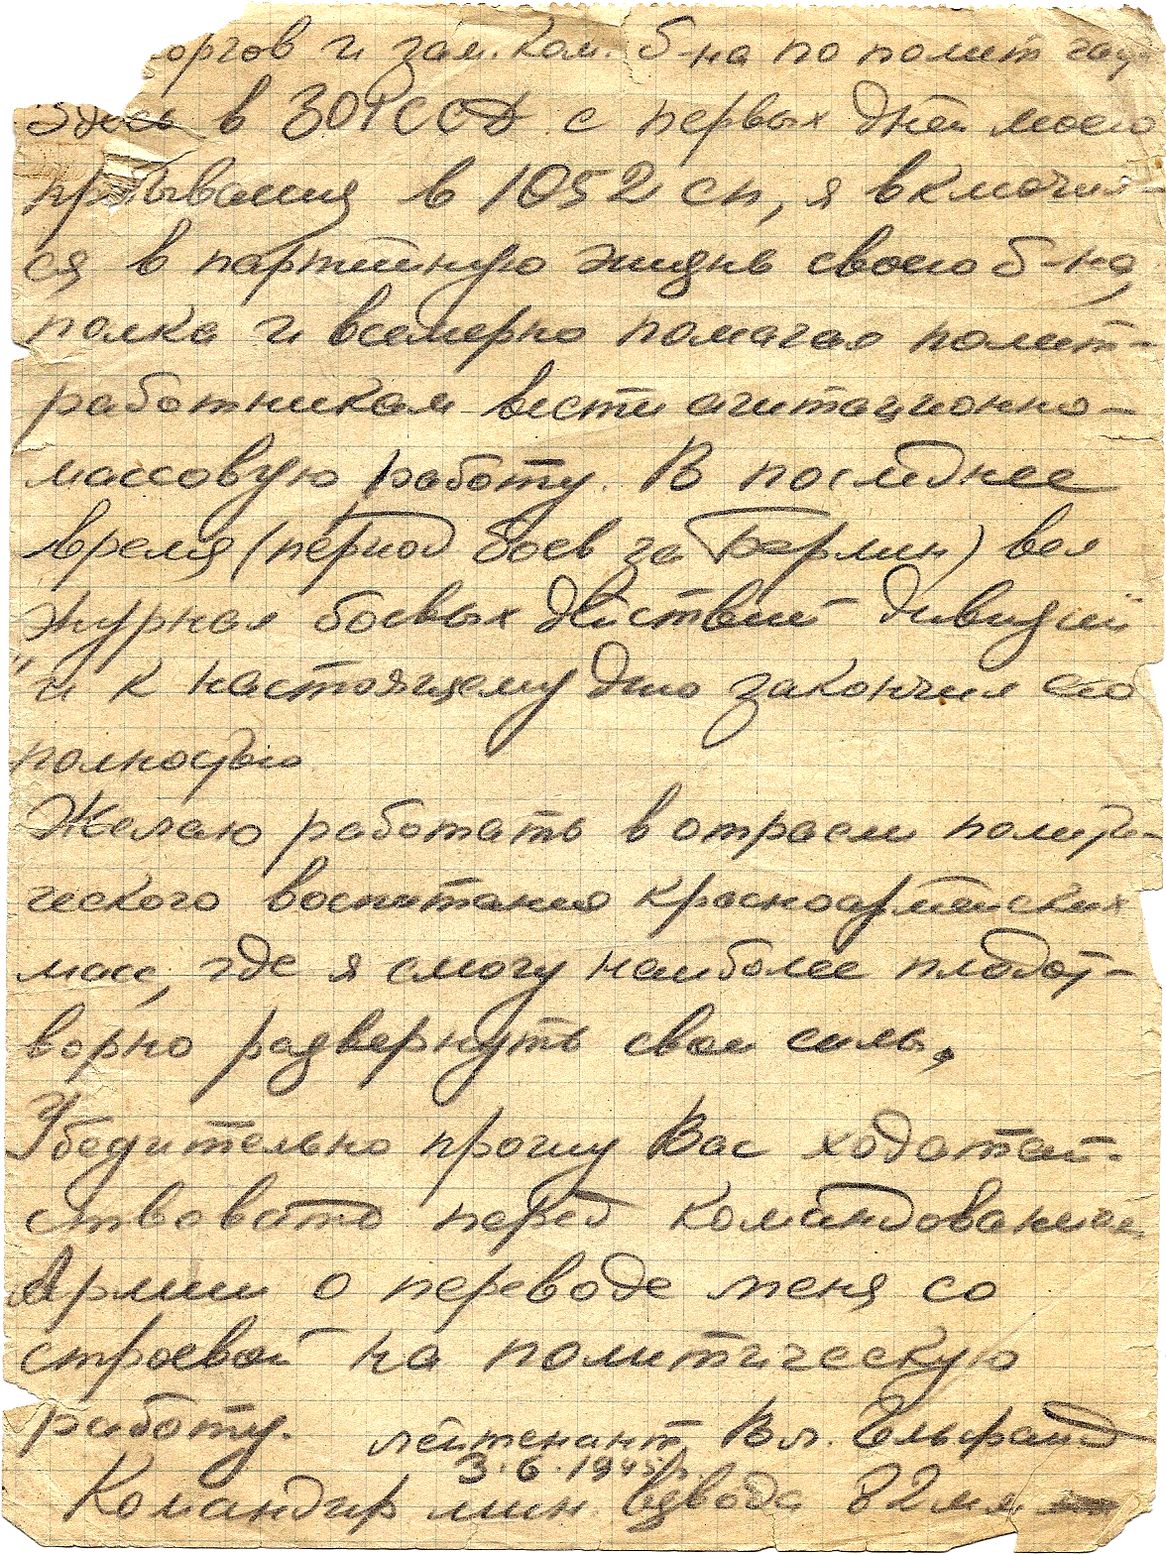 оргов и зам. ком. б-на по полит час-
Здесь в 301 СД с первых дней моего
пребывания в 1052 сп, я включил-
ся в партийную жизнь своего б-на,
полка и всемерно помагал полит-
работникам вести агитационно-
массовую работу. В последнее
время (период боев за Берлин) вел
журнал боевых действий дивизии
и к настоящему дню закончил его
полностью.
Желаю работать в отрасли полити-
ческого воспитания красноармейских
масс, где я смогу наиболее плодот-
ворно развернуть свои силы.
Убедительно прошу Вас ходатай-
ствовать перед командованием
Армии о переводе меня со
строевой на политическую
работу. лейтенант Вл. Гельфанд
3.6.1945 г.
Командир мин. взвода 82 мм